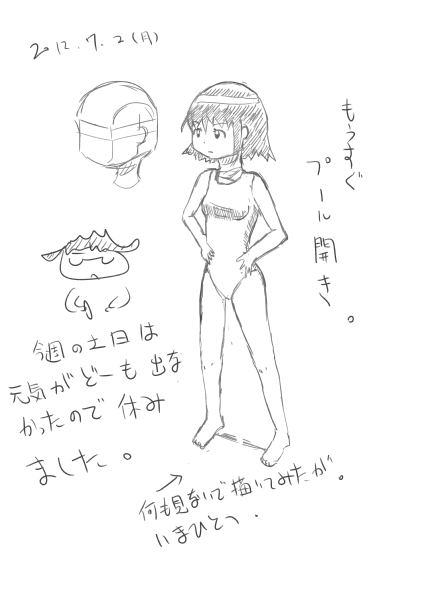 2012.7.2(月)
もうすぐ
プール開き。
今週の土日は
元気がどーも出な
かったので休み
ました。
何も見ないで描いてみたが。
いまひとつ.